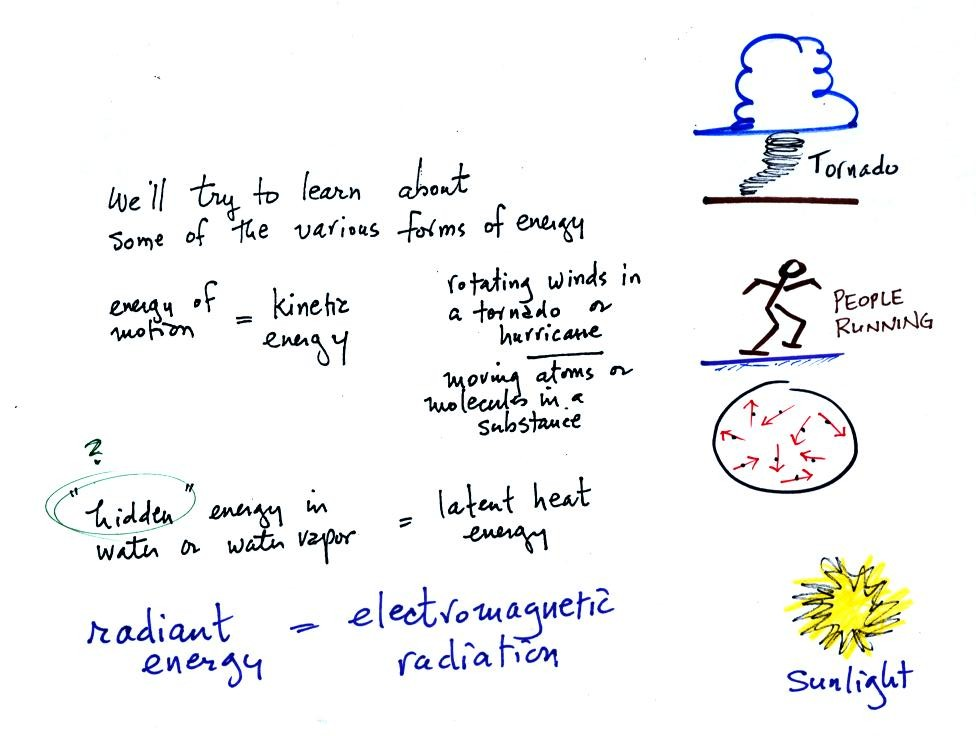 We'll try to learn about
some of the various forms of energy
Tornado
energy of
motion
=
kinetic
energy
rotating winds in
a tornado or
hurricane
moving atoms or
molecules in a
substance
PEOPLE
RUNNING
?
"hidden" energy in
water or water vapor
=
latent heat
energy
radiant
energy
=
electromagnetic
radiation
Sunlight